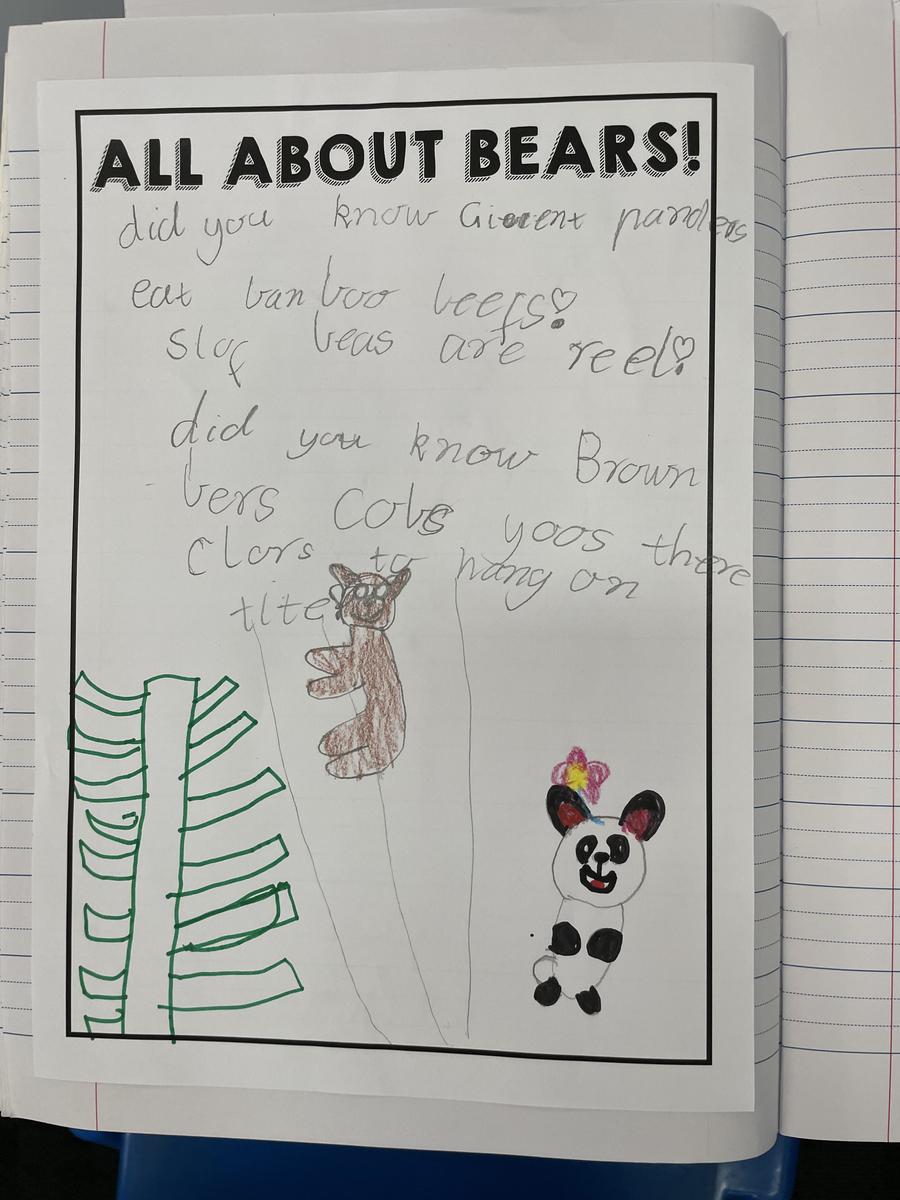 ALL ABOUT BEARS!
did you know Gieent panders
eat banboo leefs!
Slof beas are reel!
did you know Brown
bers Cobs yoos there
Clors to hang on
tite